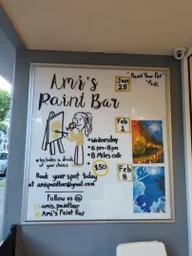 Ami's
Paint Bar
Jan
25
"Paint Your Pet"
Feb
1
• Wednesday
• 6 pm-8pm
• 8 Miles café
$50
• Includes a drink
of your choice
Feb
8
Book your spot today
at amipaintbar@gmail.com
Follow us @
amis_paintbar
Ami's Paint Bar